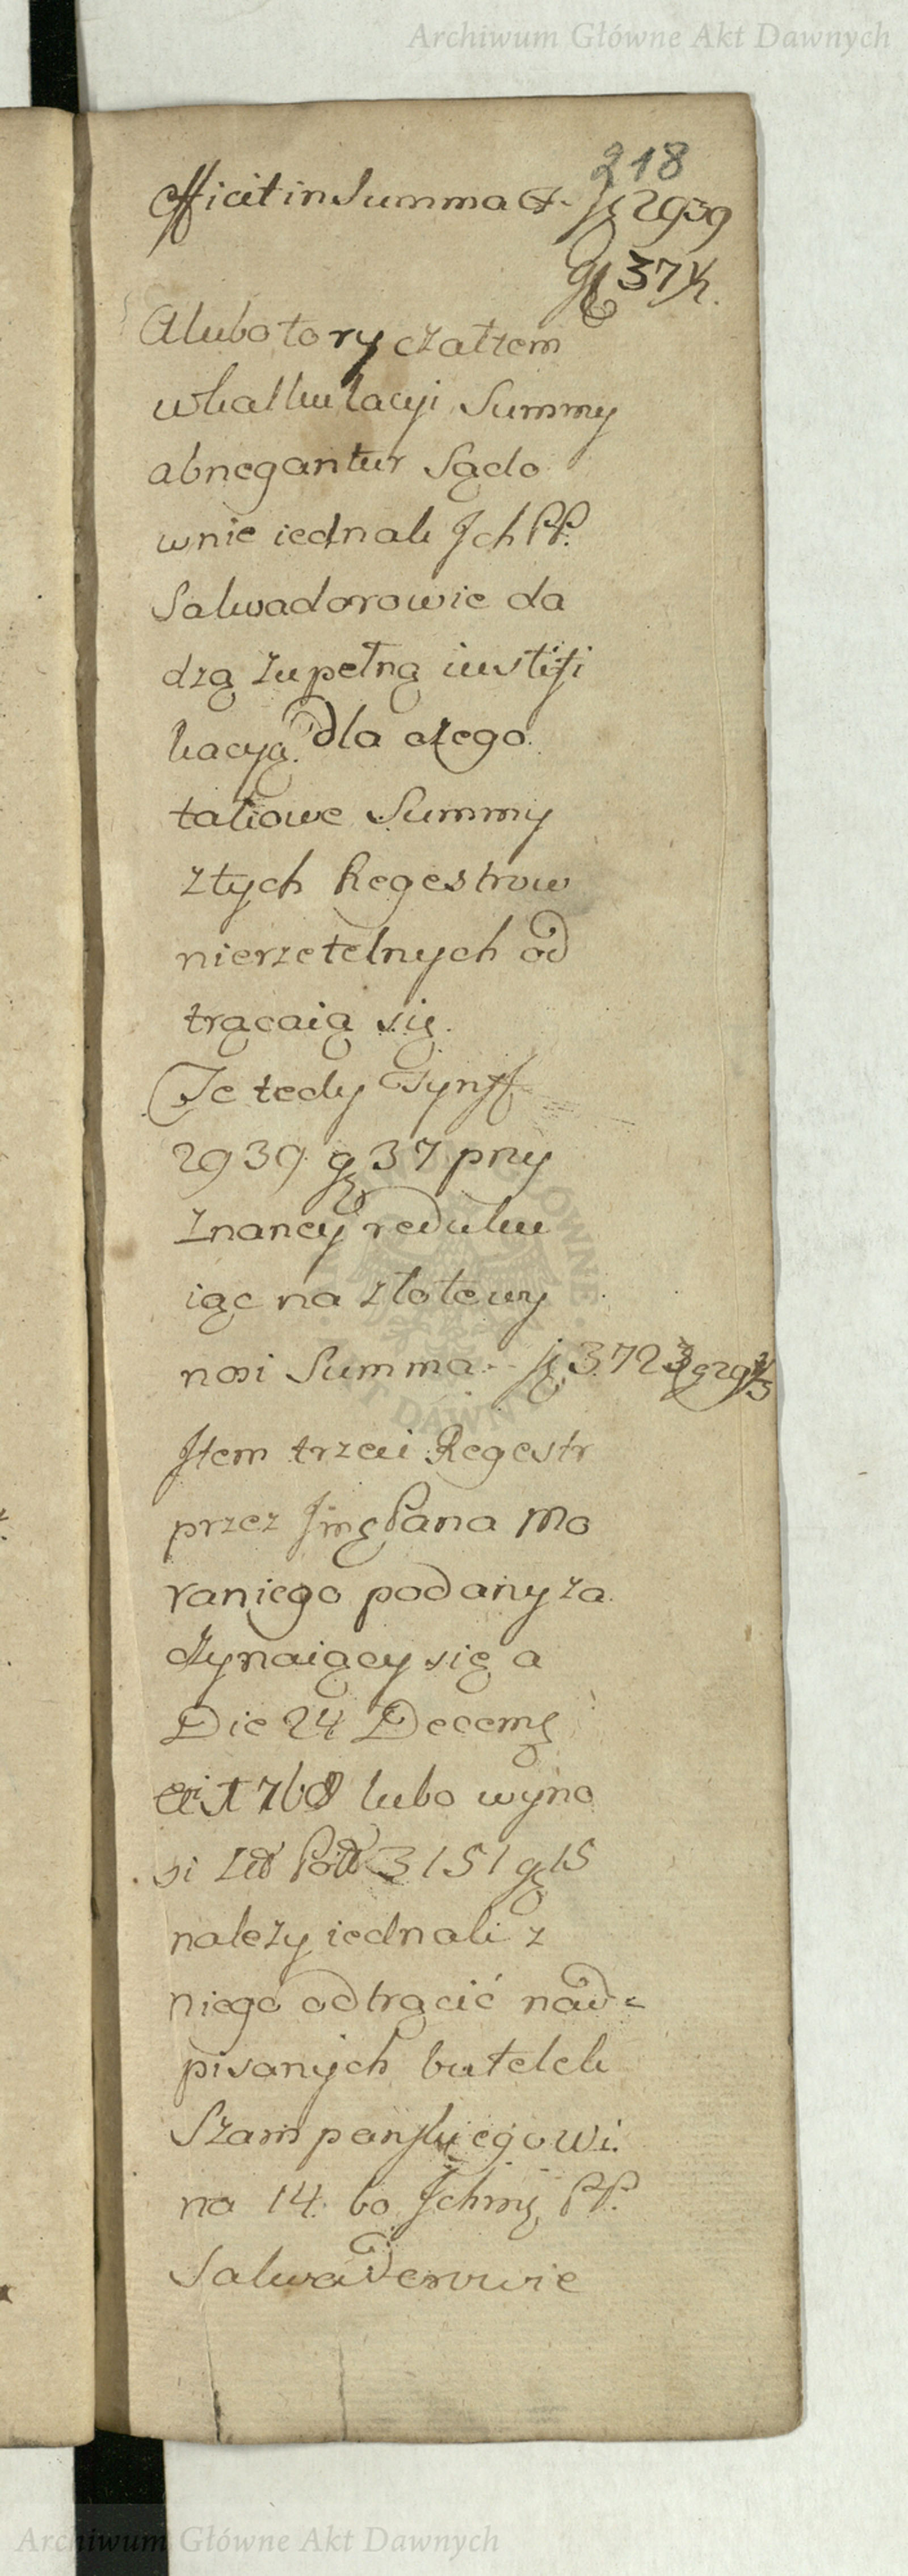 Archiwum Główne Akt Dawnych
218
Efficit in Summa 2939
gr 37½.
A lubo to ryczałtem
w kalkulacyi Summy
abnegantur Sądo
wnie iednak Ich PP.
Salwadorowie da
dzą zupełną iustifi
kacyą. dla czego
takowe Summy
z tych Regestrow
nierzetelnych od
trącaią się.
Te tedy Tynff
2939. gr 37 przy
znancy reduku
iąc na złote wy
nosi Summa -- fl 3723 gr 29
Item trzeci Regestr
przez Jmę Pana Mo
raniego podany za
czynaiący się a
Die 24 Decemb
1768 lubo wyno
si Zło Pol 3151 gr 15
należy iednak z
niego odtrącić nad=
pisanych butelek
Szampanskiego wi.
na 14. bo Ichmę PP.
Salwadorowie
Archiwum Główne Akt Dawnych